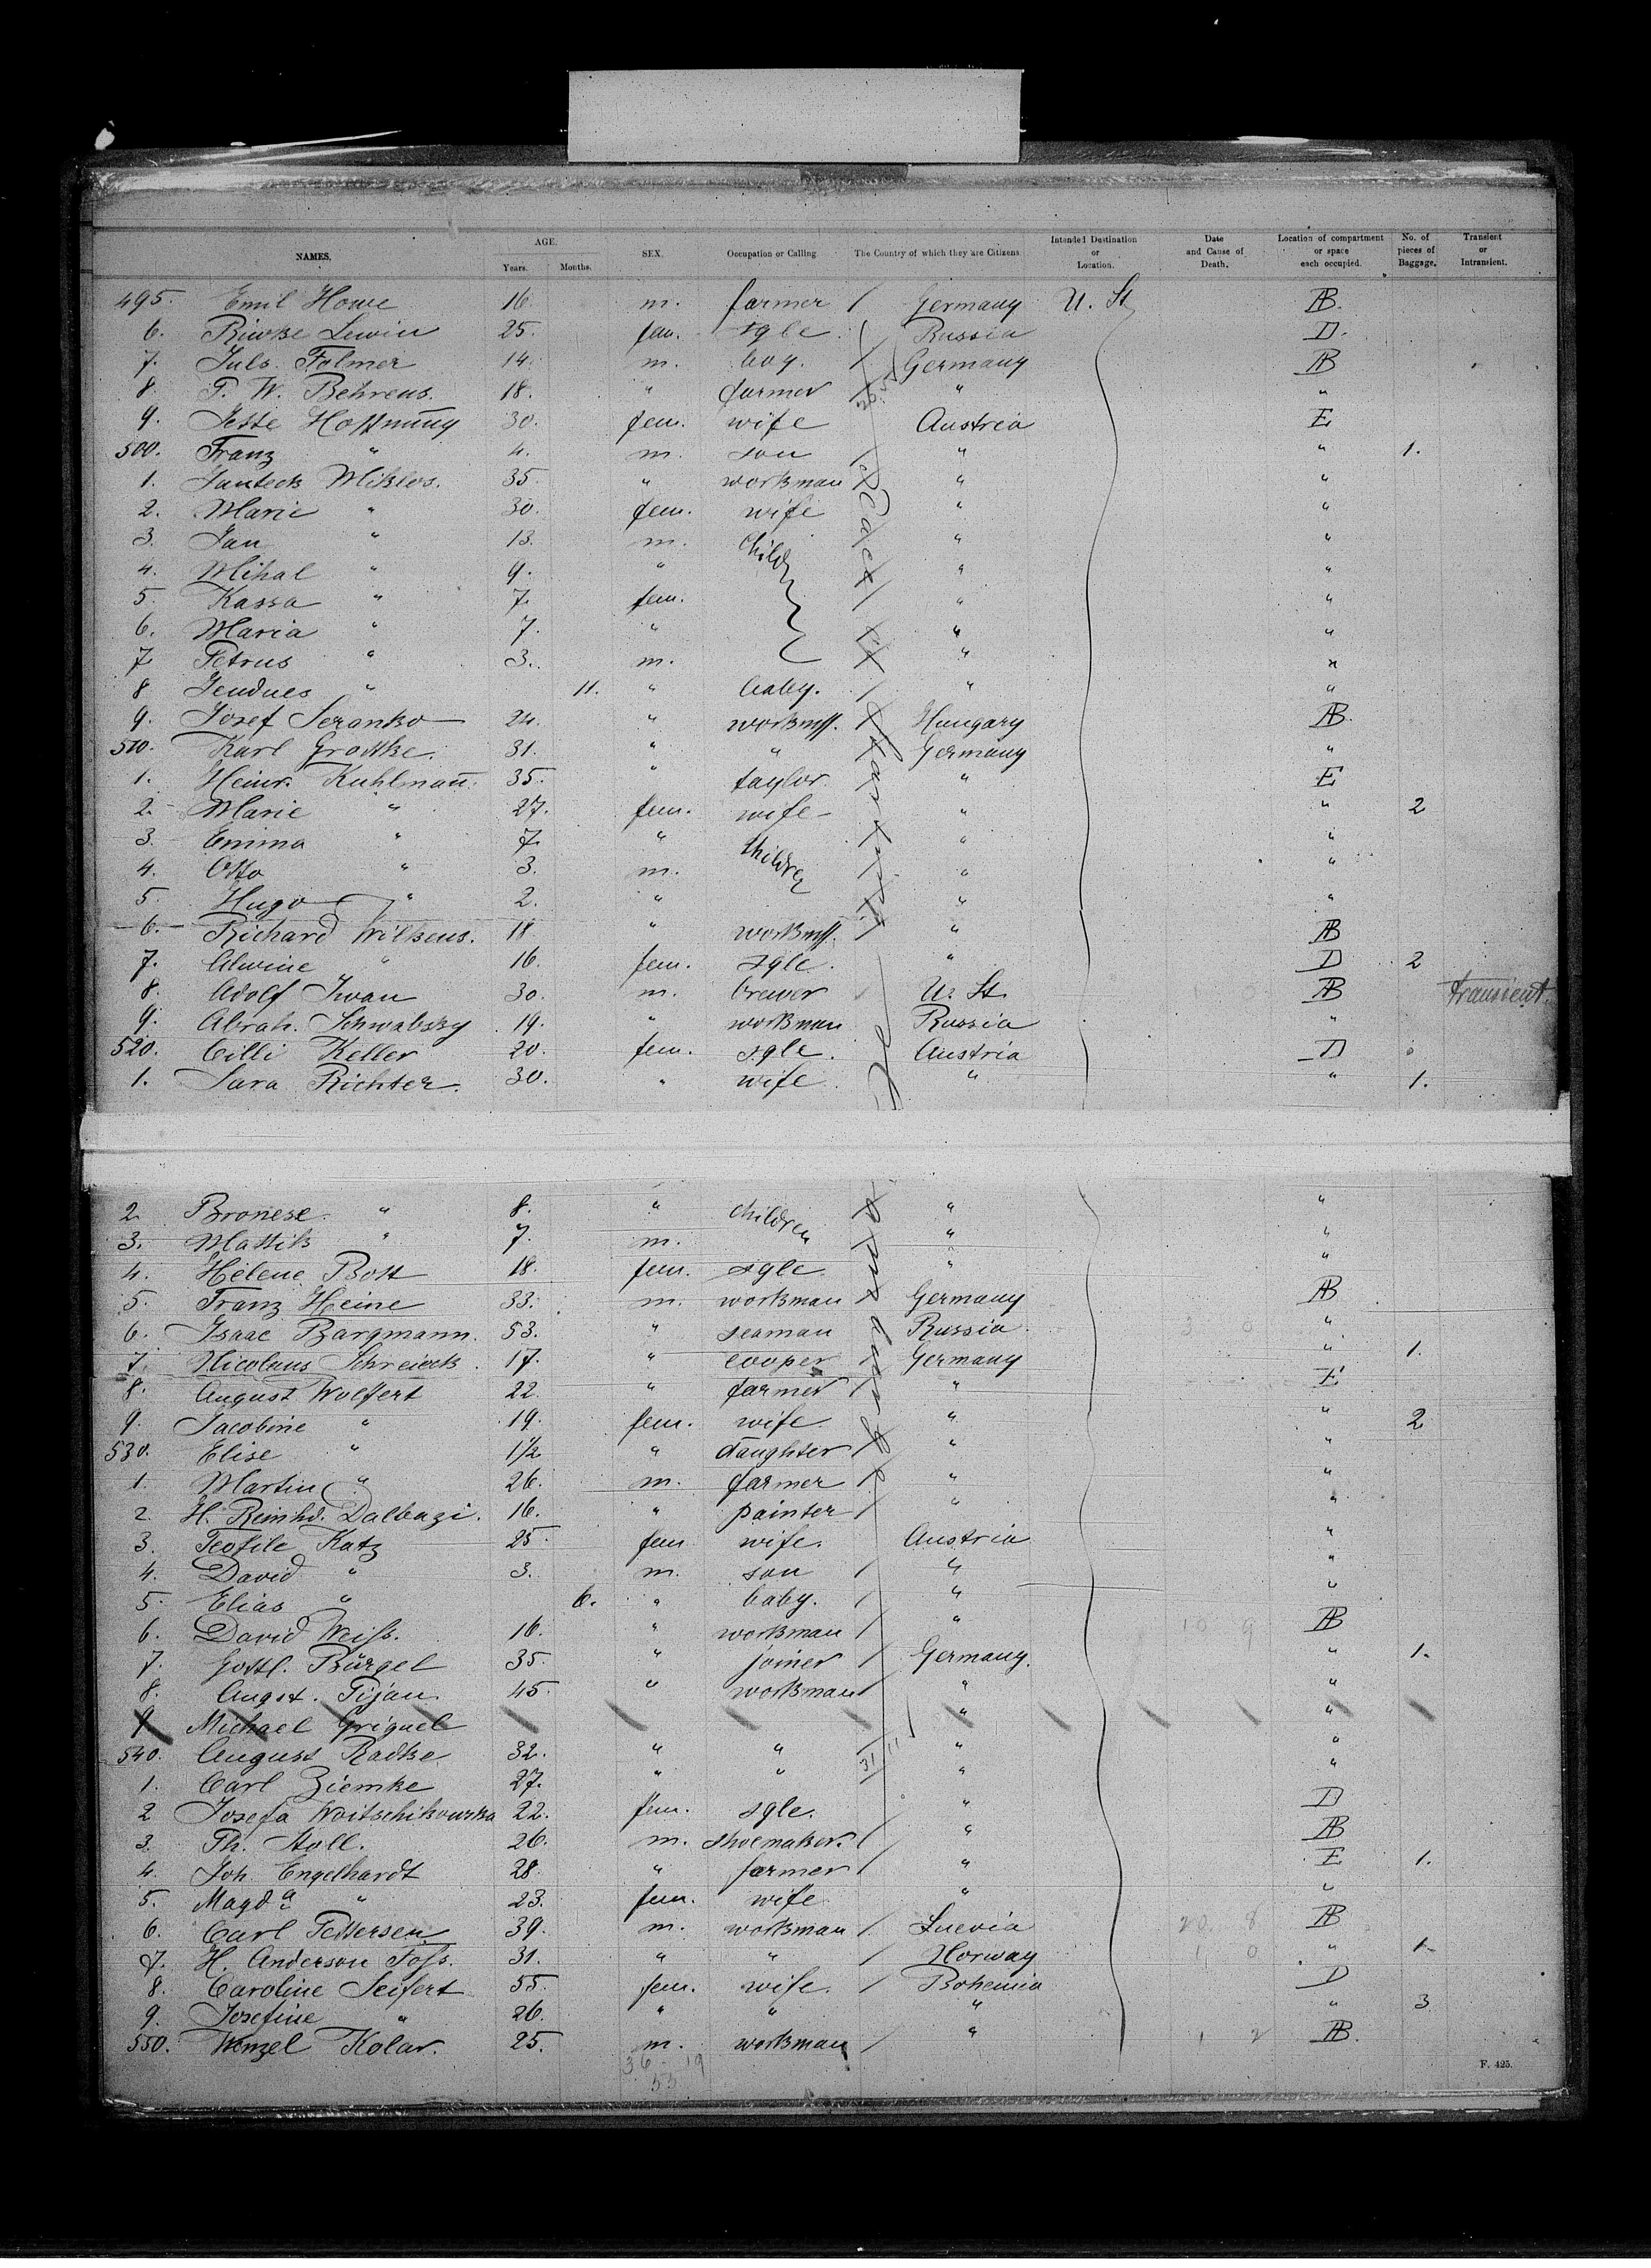 NAMES. AGE. Years. Months. SEX. Occupation or Calling The Country of which they are Citizens Intended Destination or Location. Date and Cause of Death. Location of compartment or space each occupied. No. of pieces of Baggage. Transient or Intransient.
495. Emil Howe 16. m. farmer / Germany U. St. AB.
6. Riwke Lewin 25. fem. sgle Russia D.
7. Juls. Folmer 14. m. boy. / Germany AB
8. F. W. Behrens. 18. " farmer / " "
9. Jette Hoffnung 30. fem. wife Austria E
500. Franz " 4. m. son / " " 1.
1. Janteck Miklos. 35. " workman / " "
2. Marie " 30. fem. wife " "
3. Jan " 13. m. Childr " "
4. Mihal " 9. " " "
5. Kassa " 7. fem. " "
6. Maria " 7. " " "
7. Petrus " 3. m. " "
8. " 11. " baby. / " "
9. Josef Seranko 24. " workm. / Hungary AB.
510. Karl Grodtke. 31. " " Germany "
1. Heinr. Kuhlman̄. 35. " taylor. " E
2. Marie " 27. fem. wife " " 2
3. Emma " 7. " Children " "
4. Otto " 3. m. / " "
5. Hugo " 2. " " "
6. Richard Wilkens. 18. " workm. / " AB
7. Alwine " 16. fem. sgle. " D 2
8. Adolf Iwan 30. m. brewer U. St. AB transient.
9. Abrah. Schwabsky 19. " workman Russia "
520. Cilli Keller 20. fem. sgle. Austria D
1. Sara Richter. 30. " wife " " 1.
2. Bronese. " 8. " children " "
3. Mattik " 7. m. " "
4. Helene Bott 18. fem. sgle. " "
5. Franz Heine 33. m. workman / Germany AB
6. Isaac Bargmann. 53. " seaman Russia. "
7. Nicolaus Schreieck. 17. " cooper / Germany " 1.
8. August Wolfert 22. " farmer / " E
9. Jacobine " 19. fem. wife " " 2
530. Elise " 1½ " daughter / " "
1. Martin " 26. m. farmer / " "
2. H. Reinhd. Dalbazi. 16. " painter / " "
3. Teofile Katz 25. fem wife. Austria "
4. David " 3. m. son / " "
5. Elias " 6. " baby. / " "
6. David Weiss. 16. " workman / " 10 9 AB
7. Gottl. Bürgel 35. " joiner / Germany. " 1.
8. Augst. Pijan. 45. " workman / " "
9 Michael Griguel " "
540. August Radke 32. " " / 31 11 " "
1. Carl Ziemke 27. " " " "
2 Josefa Woitschikowska 22. fem. sgle. " D
3. Th. Stoll. 26. m. shoemaker. / " AB
4. Joh. Engelhardt 28. " farmer / " E 1.
5. Magda " 23. fem. wife " "
6. Carl Pettersen 39. m. workman / Suevia 20. 8 AB
7. H. Anderson Foss. 31. " " / Norway " 1
8. Caroline Seifert 55. fem. wife. / Bohemia D
9. Josefine " 26. " " " " 3
550. Wenzel Kolar. 25. m. workman / " 1 2 AB.
36 19
55
F. 425.